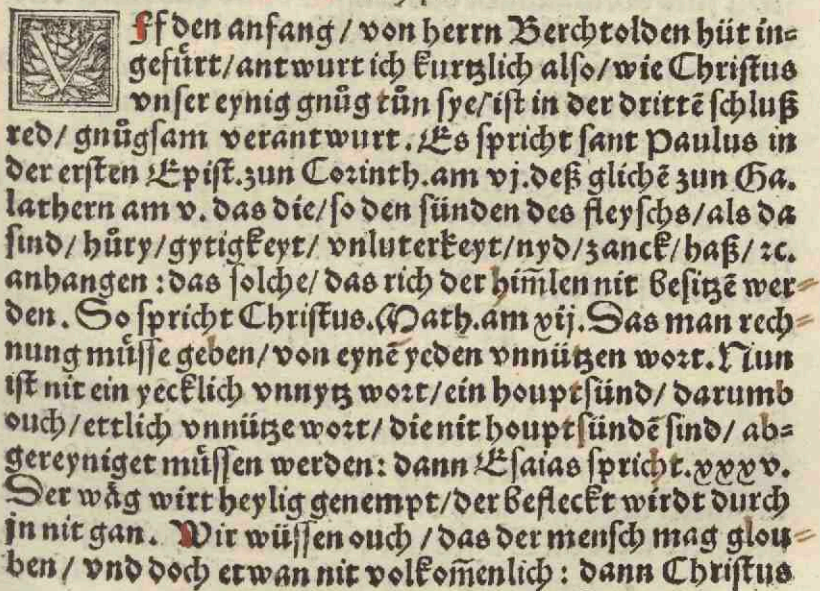 Vff den anfang / von herrn Berchtolden hüt in=
gefuͤrt/antwurt ich kurtzlich also/wie Christus
vnser eynig gnuͦg tuͦn sye/ist in der drittẽ schluß
red/ gnuͦgsam verantwurt. Es spricht sant Paulus in
der ersten Epist.zun Corinth.am vj.deß glichẽ zun Ga.
lathern am v. das die/so den sünden des fleyschs/als da
sind/huͦry/gytigkeyt/ vnluterkeyt/nyd/zanck/haß/ ꝛc.
anhangen : das solche/ das rich der him̃len nit besitzẽ wer=
den. So spricht Christus.Math.am xij.Das man rech=
nung muͤsse geben/von eynẽ yeden vnnützen wort.Nun
ist nit ein yecklich vnnytz wort/ein houptsünd/ darumb
ouch/ettlich vnnütze wort/ die nit houptsündẽ sind/ ab=
gereyniget muͤssen werden: dann Esaias spricht.xxxv.
Der waͤg wirt heylig genempt/der befleckt wirdt durch
jn nit gan. Wir wüssen ouch /das der mensch mag glou=
ben/ vnd doch etwan nit volkom̃enlich : dann Christus